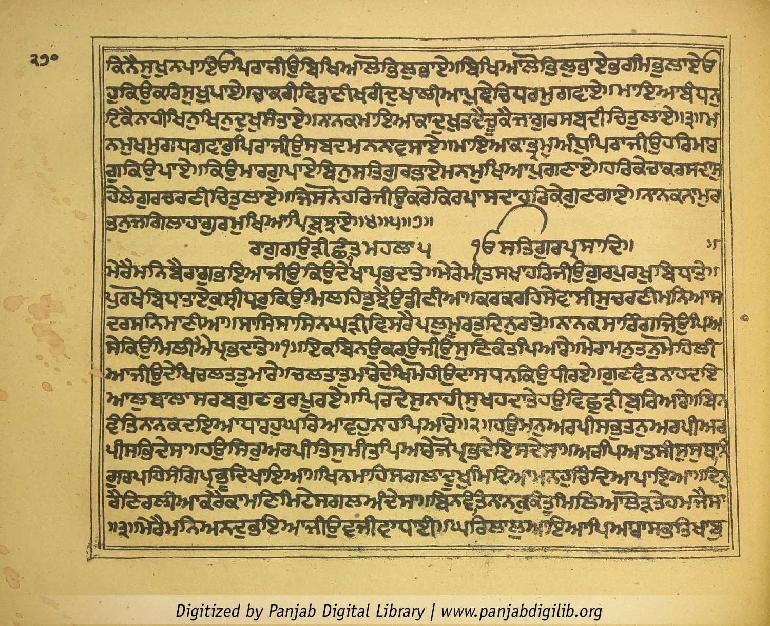 ਕਿਨੈਸੁਖੁਨਪਾਇਓਪਿਰਾਜੀਉਬਿਖਿਆਲੋਭਿਲੁਭਾਏ॥ਬਿਖਿਆਲੋਭਿਲੁਭਾਏਭਰਮਿਭੁਲਾਏਓ
ਹੁਕਿਉਕਰਿਸੁਖੁਪਾਏ॥ਚਾਕਰੀਵਿਡਾਣੀਖਰੀਦੁਖਾਲੀਆਪੁਵੇਚਿਧਰਮੁਗਵਾਏ॥ਮਾਇਆਬੰਧਨ
ਟਿਕੈਨਾਹੀਖਿਨੁਖਿਨੁਦੁਖੁਸੰਤਾਏ॥ਨਾਨਕਮਾਇਆਕਾਦੁਖੁਤਦੇਚੂਕੈਜਾਗੁਰਸਬਦੀਚਿਤੁਲਾਏ॥੩॥ਮ
ਨਮੁਖਮੁਗਧਗਾਵਾਰੁਪਿਰਾਜੀਉਸਬਦੁਮਨਿਨਵਸਾਏ॥ਮਾਇਆਕਾਭ੍ਰਮੁਅੰਧੁਪਿਰਾਜੀਉਹਰਿਮਾਰ
ਗੁਕਿਉਪਾਏ॥ਕਿਉਮਾਰਗੁਪਾਏਬਿਨੁਸਤਿਗੁਰਭਾਏਮਨਮੁਖਿਆਪੁਗਣਾਏ॥ਹਰਿਕੇਚਾਕਰਸਦਾਸੁ
ਹੇਲੇਗੁਰਚਰਣੀਚਿਤੁਲਾਏ॥ਜਿਸਨੋਹਰਿਜੀਉਕਰੇਕਿਰਪਾਸਦਾਹਰਿਕੇਗੁਣਗਾਏ॥ਨਾਨਕਨਾਮੁਰ
ਤਨੁਜਗਿਲਾਹਾਗੁਰਮੁਖਿਆਪਿਬੁਝਾਏ॥੪॥੫॥੭॥
ਰਾਗੁਗਉੜੀਛੰਤਮਹਲਾ੫ ੴਸਤਿਗੁਰਪ੍ਰਸਾਦਿ॥
ਮੇਰੈਮਨਿਬੈਰਾਗੁਭਇਆਜੀਉਕਿਉਦੇਖਾਪ੍ਰਭਦਾਤੇ॥ਮੇਰੇਮੀਤਸਖਾਹਰਿਜੀਉਗੁਰਪੁਰਖਬਿਧਾਤੇ॥
ਪੁਰਖੋਬਿਧਾਤਾਏਕੁਸ੍ਰੀਧਰੁਕਿਉਮਿਲਹਤੁਝੈਉਡੀਣੀਆ॥ਕਰਕਰਹਿਸੇਵਾਸੀਸੁਚਰਣੀਮਨਿਆਸ
ਦਰਸਨਿਮਾਣੀਆ॥ਸਾਸਿਸਾਸਿਨਘੜੀਵਿਸਰੈਪਲੁਮੂਰਤੁਦਿਨੁਰਾਤੇ॥ਨਾਨਕਸਾਰਿੰਗਜਿਉਪਿਆ
ਸੇਕਿਉਮਿਲੀਐਪ੍ਰਭਦਾਤੇ॥੧॥ਇਕਬਿਨਉਕਰਉਜੀਉਸੁਣਿਕੰਤਪਿਆਰੇ॥ਮੇਰਾਮਨੁਤਨੁਮੋਹਿਲੀ
ਆਜੀਉਦੇਖਿਚਲਤਤੁਮਾਰੇ॥ਚਲਤਾਤੁਮਾਰੇਦੇਖਿਮੋਹੀਉਦਾਸਧਨਕਿਉਧੀਰਏ॥ਗੁਣਵੰਤਨਾਹਦਇ
ਆਲੁਬਾਲਾਸਰਬਗੁਣਭਰਪੂਰਏ॥ਪਿਰਦੋਸੁਨਾਹੀਸੁਖਹਦਾਤੇਹਉਵਿਛੁੜੀਬੁਰਿਆਰੇ॥ਬਿਨ
ਵੰਤਿਨਾਨਕਦਇਆਧਾਰਹੁਘਰਿਆਵਹੁਨਾਹਪਿਆਰੇ॥੨॥ਹਉਮਨੁਅਰਪੀਸਭੁਤਨੁਅਰਪੀਅਰ
ਪੀਸਭਿਦੇਸਾ॥ਹਉਸਿਰੁਅਰਪੀਤਿਸੁਮੀਤਪਿਆਰੇਜੋਪ੍ਰਭਦੇਇਸਦੇਸਾ॥ਅਰਪਿਆਤਸੀਸੁਸੁਥਾਨਿ
ਗੁਰਪਹਿਸੰਗਿਪ੍ਰਭੂਦਿਖਾਇਆ॥ਖਿਨਮਾਹਿਸਗਲਾਦੂਖੁਮਿਟਿਆਮਨਹੁਚਿੰਦਿਆਪਾਇਆ॥ਦਿਨੁ
ਰੈਣਿਰਲੀਆਕਰੈਕਾਮਣਿਮਿਟੇਸਗਲਅੰਦੇਸਾ॥ਬਿਨਵੰਤਿਨਾਨਕੁਕੰਤੁਮਿਲਿਆਲੋੜਤੇਹਮਜੈਸਾ
॥੩॥ਮੇਰੈਮਨਿਅਨਦੁਭਇਆਜੀਉਵਜੀਵਾਧਾਈ॥ਘਰਿਲਾਲੁਆਇਆਪਿਆਰਾਸਭਤਿਖਾਬੁ
੨੭੦
Digitized by Panjab Digital Library | www.panjabdigilib.org